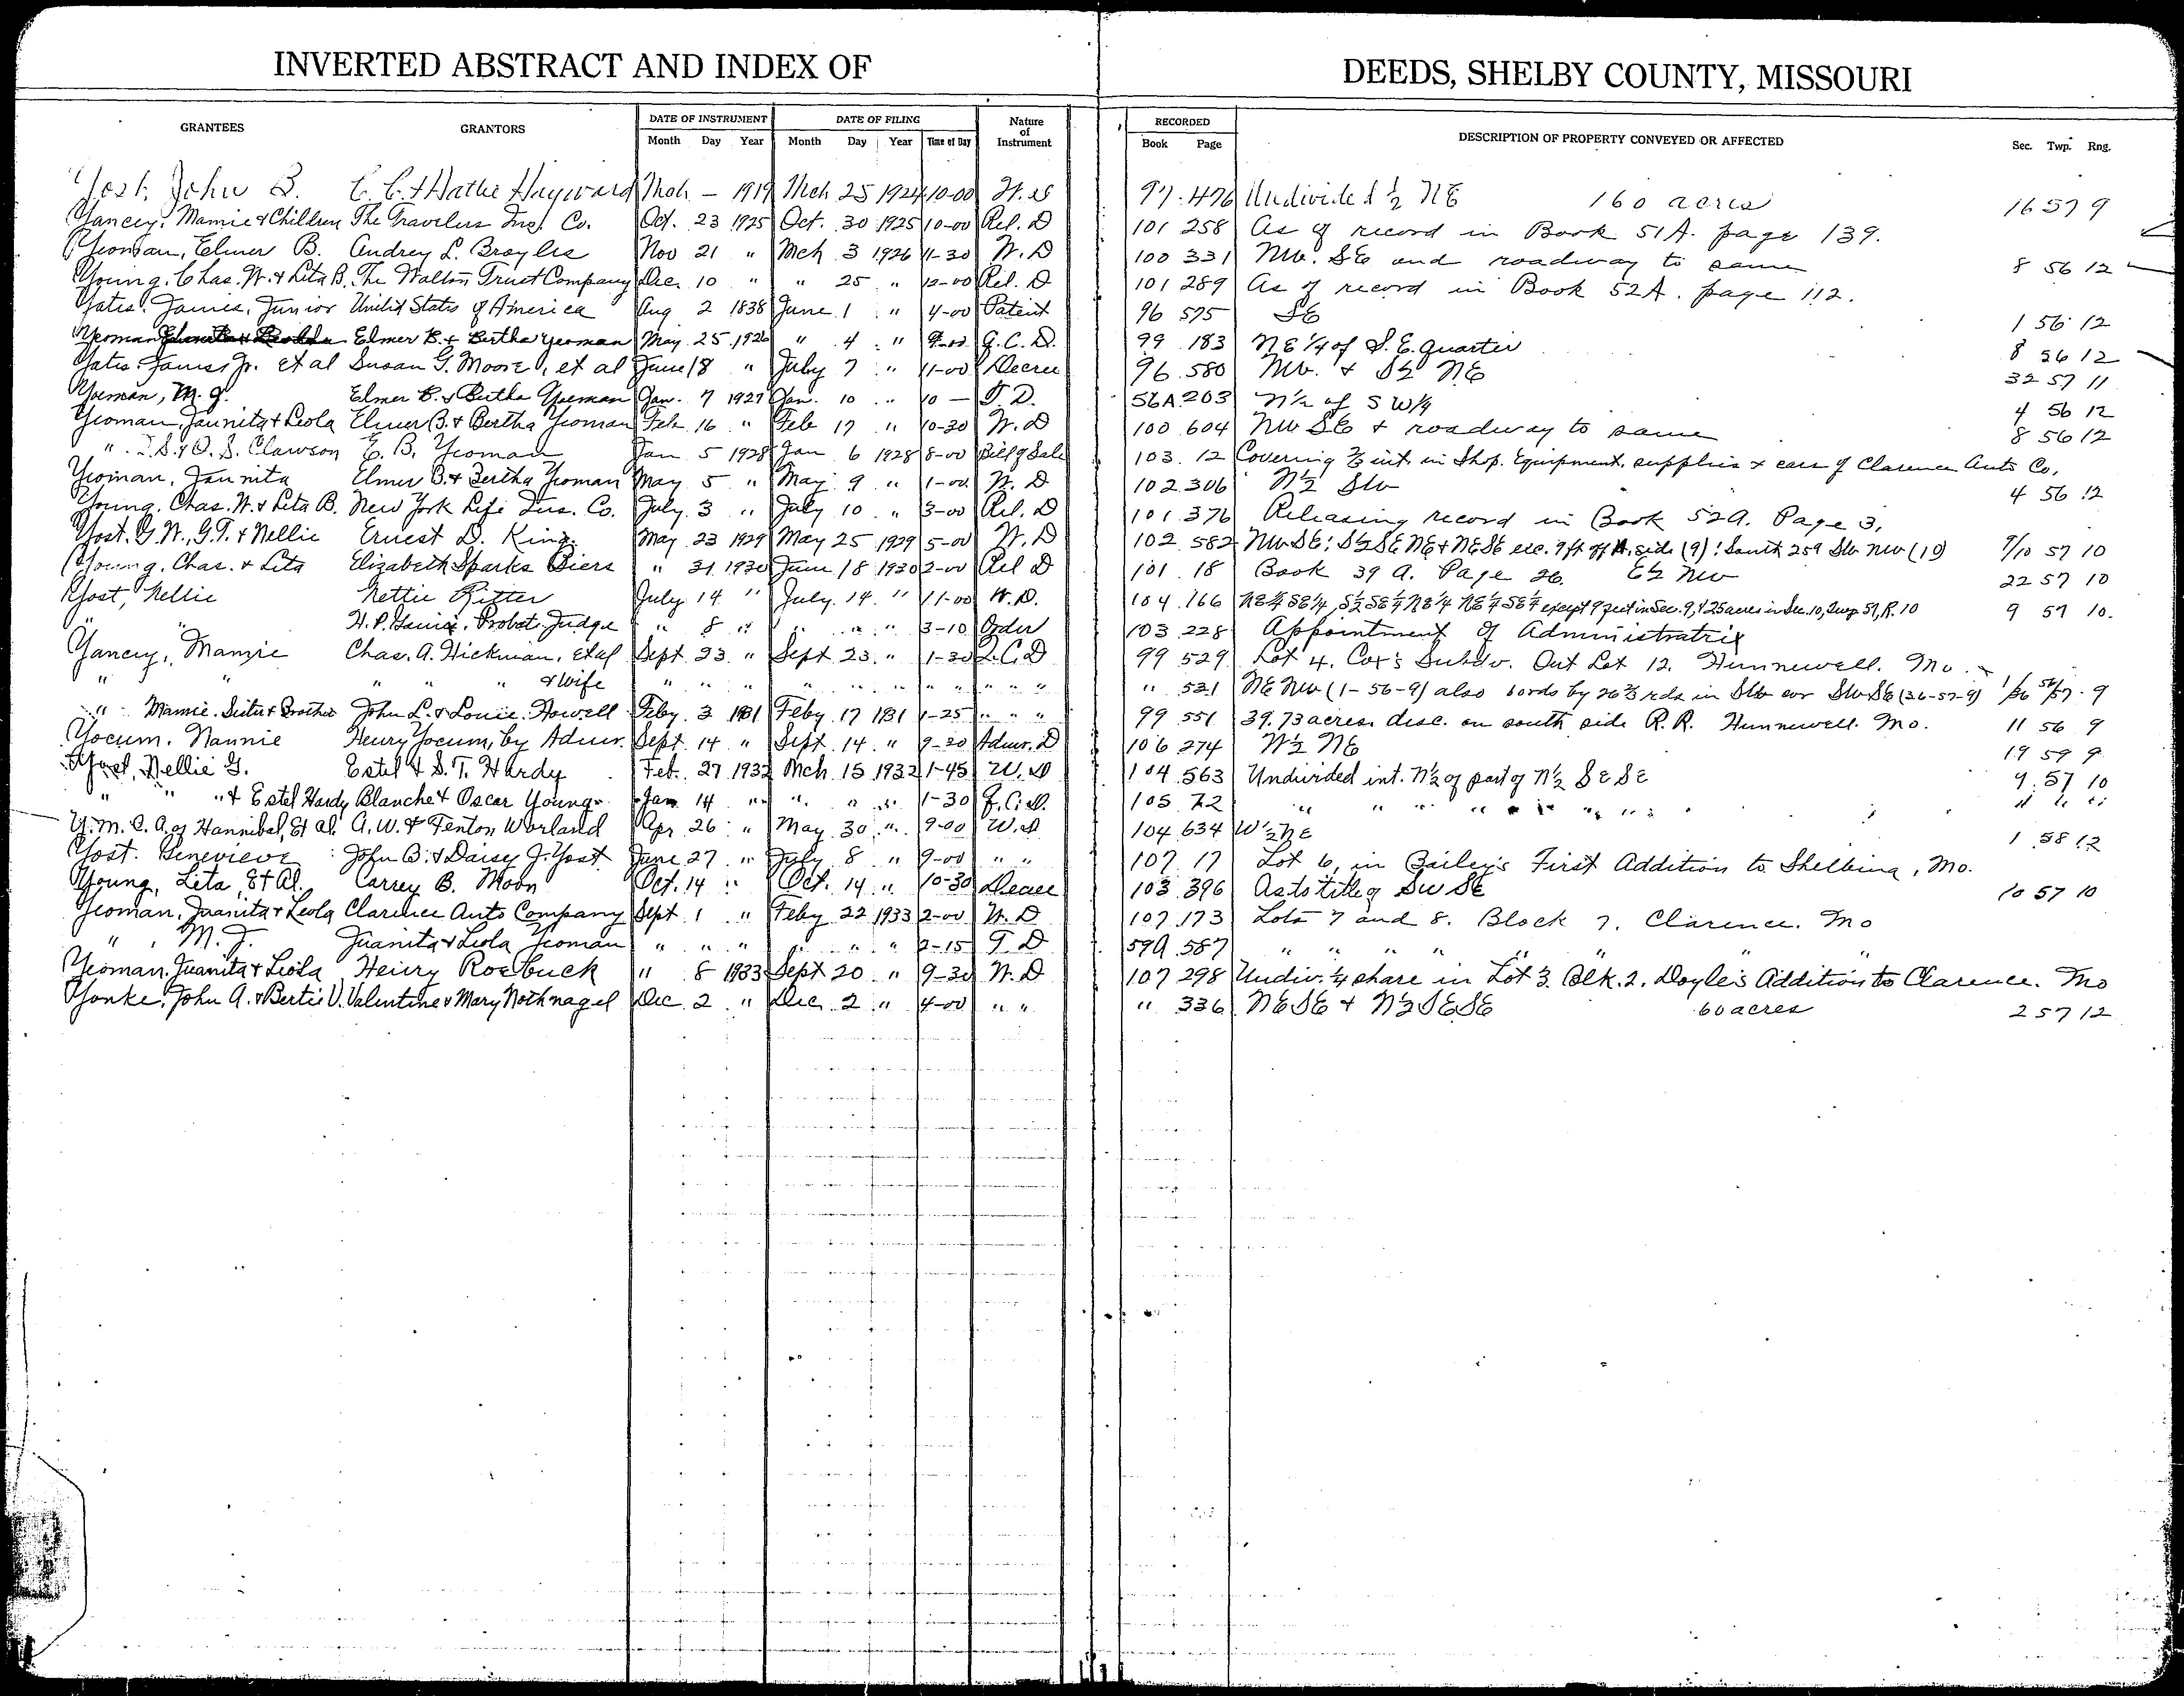 INVERTED ABSTRACT AND INDEX OF DEEDS, SHELBY COUNTY, MISSOURI
GRANTEES GRANTORS DATE OF INSTRUMENT DATE OF FILING Nature of Instrument RECORDED DESCRIPTION OF PROPERTY CONVEYED OR AFFECTED
Month Day Year Month Day Year Time of Day Book Page Sec. Twp. Rng.
Yost, John B. C. C. & Hattie Hayward Mch - 1919 Mch 25 1924 10-00 W. D 97 476 Undivided ½ NE 160 acres 16 57 9
Yancey, Mamie & Children The Travelers Ins. Co. Oct. 23 1925 Oct. 30 1925 10-00 Rel. D 101 258 As of record in Book 51A. page 139.
Yeoman, Elmer B. Audrey L. Broyles Nov 21 " Mch 3 1926 11-30 W. D 100 331 NW. SE and roadway to same 8 56 12
Young, Chas. W. & Leta B. The Walton Trust Company Dec. 10 " " 25 " 12-00 Rel. D 101 289 As of record in Book 52A. page 112.
Yates, James, Junior United States of America Aug 2 1838 June 1 " 4-00 Patent 96 575 SE 1 56 12
Yeoman Elmer B. & Bertha Yeoman May 25 1926 " 4 " 9-00 Q. C. D. 99 183 NE ¼ of S. E. Quarter 8 56 12
Yates James Jr. et al Susan G. Moore, et al June 18 " July 7 " 11-00 Decree 96 580 NW. & S½ NE 32 57 11
Yoeman, M. J. Elmer B. & Bertha Yoeman Jan. 7 1927 Jan. 10 " 10 — T. D. 56A 203 N½ of SW¼ 4 56 12
Yeoman, Jaunita & Leola Elmer B. & Bertha Yeoman Feb 16 " Feb 17 " 10-30 W. D 100 604 NW SE & roadway to same 8 56 12
" & O. S. Clawson E. B. Yeoman Jan 5 1928 Jan 6 1928 8-00 Bill of Sale 103 12 Covering ⅔ int. in Shop. Equipment, supplies & cars of Clarence Auto Co.
Yeoman, Jaunita Elmer B. & Bertha Yeoman May 5 " May 9 " 1-00 W. D 102 306 N½ SW 4 56 12
Young, Chas. W. & Leta B. New York Life Ins. Co. July 3 " July 10 " 3-00 Rel. D 101 376 Releasing record in Book 52A. Page 3.
Yost, G. W., G. T. & Nellie Ernest D. King May 23 1929 May 25 1929 5-00 W. D 102 582 NW SE; S½ SE NE & NE SE exc. 9 ft off side (9); South 25a SW NW (10) 9/10 57 10
Young, Chas. & Leta Elizabeth Sparks Biers " 31 1930 June 18 1930 2-00 Rel D 101 18 Book 39 A. Page 26. E½ NW 22 57 10
Yost, Nellie Nettie Ritter July 14 " July 14 " 11-00 W. D. 104 166 NE¼ SE¼, S½ SE¼ NE¼ NE¼ SE¼ except 9 feet in Sec. 9, & 25 acres in Sec. 10, Twp 57, R. 10 9 57 10.
" " H. P. Probat Judge " 8 " " " " 3-10 Order 103 228 Appointment of Administratrix
Yancey, Mamie Chas. A. Hickman, Et al Sept 23 " Sept 23 " 1-30 Q. C. D 99 529 Lot 4. Cox's Subdiv. Out Lot 12. Hunnewell. Mo.
" " " " " & Wife " " " " " " " " " " " " 531 NE NW (1-56-9) also 60 rds by 26⅔ rds in SW cor SW SE (36-57-9) 1/36 56/57 9
" Mamie, Sister & Brother John L. & Louie Howell Feby 3 1931 Feby 17 1931 1-25 " " " 99 551 39.73 acres desc. on south side R. R. Hunnewell. Mo. 11 56 9
Yocum, Nannie Henry Yocum, by Admr. Sept. 14 " Sept. 14 " 9-30 Admr. D 106 274 W½ NE 19 59 9
Yost, Nellie G. Estel & S. T. Hardy Feb. 27 1932 Mch 15 1932 1-45 W. D 104 563 Undivided int. N½ of part of N½ SE SE 9 57 10
" " " & Estel Hardy Blanche & Oscar Young Jan 14 " " " " 1-30 Q. C. D. 105 72 " " " " " " " " " " "
Y. M. C. A. of Hannibal, Et al. A. W. & Fenton Worland Apr 26 " May 30 " 9-00 W. D 104 634 W½ NE 1 58 12
Yost, Genevieve John B. & Daisy J. Yost June 27 " July 8 " 9-00 " " 107 17 Lot 6, in Bailey's First Addition to Shelbina, Mo.
Young, Leta, Et Al. Carrey B. Moon Oct. 14 " Oct. 14 " 10-30 Decree 103 396 As to title of SW SE 10 57 10
Yeoman, Juanita & Leola Clarence Auto Company Sept 1 " Feby 22 1933 2-00 W. D 107 173 Lots 7 and 8. Block 7. Clarence. Mo
" , M. J. Juanita & Leola Yeoman " " " " " " 2-15 T. D 59A 587 " " " " " " "
Yeoman, Juanita & Leola Henry Roebuck " 8 1933 Sept 20 " 9-30 W. D 107 298 Undiv. ¼ share in Lot 3. Blk. 2. Doyle's Addition to Clarence. Mo
Yonke, John A. & Bertie V. Valentine & Mary Nothnagel Dec 2 " Dec 2 " 4-00 " " " 336 NE SE & N½ SE SE 60 acres 2 57 12